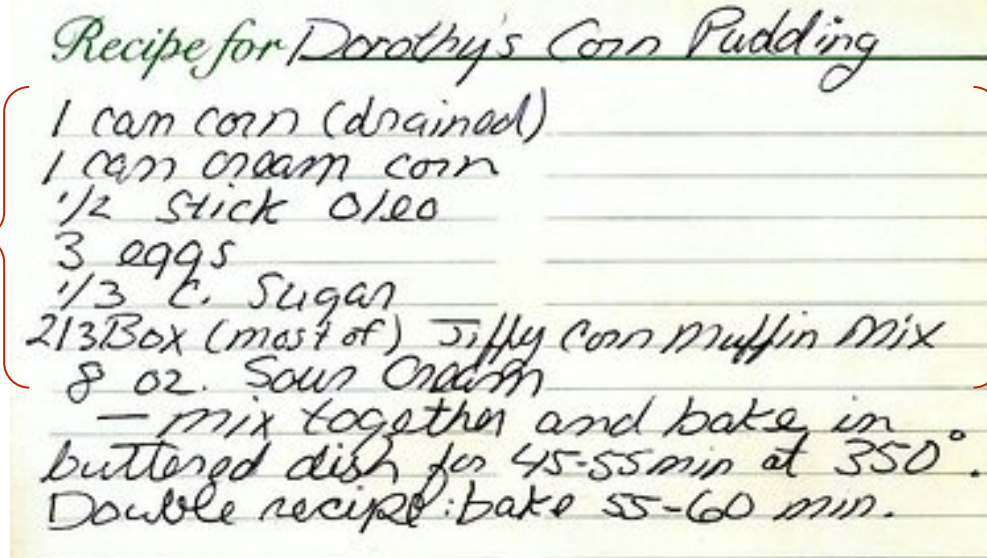 Recipe for Dorothy's Corn Pudding
1 can corn (drained)
1 can cream corn
1/2 stick oleo
3 eggs
1/3 c. Sugar
2/3 Box (most of) Jiffy Corn muffin mix
8 oz. Sour Cream
— mix together and bake in
buttered dish for 45-55 min at 350°.
Double recipe: bake 55-60 min.